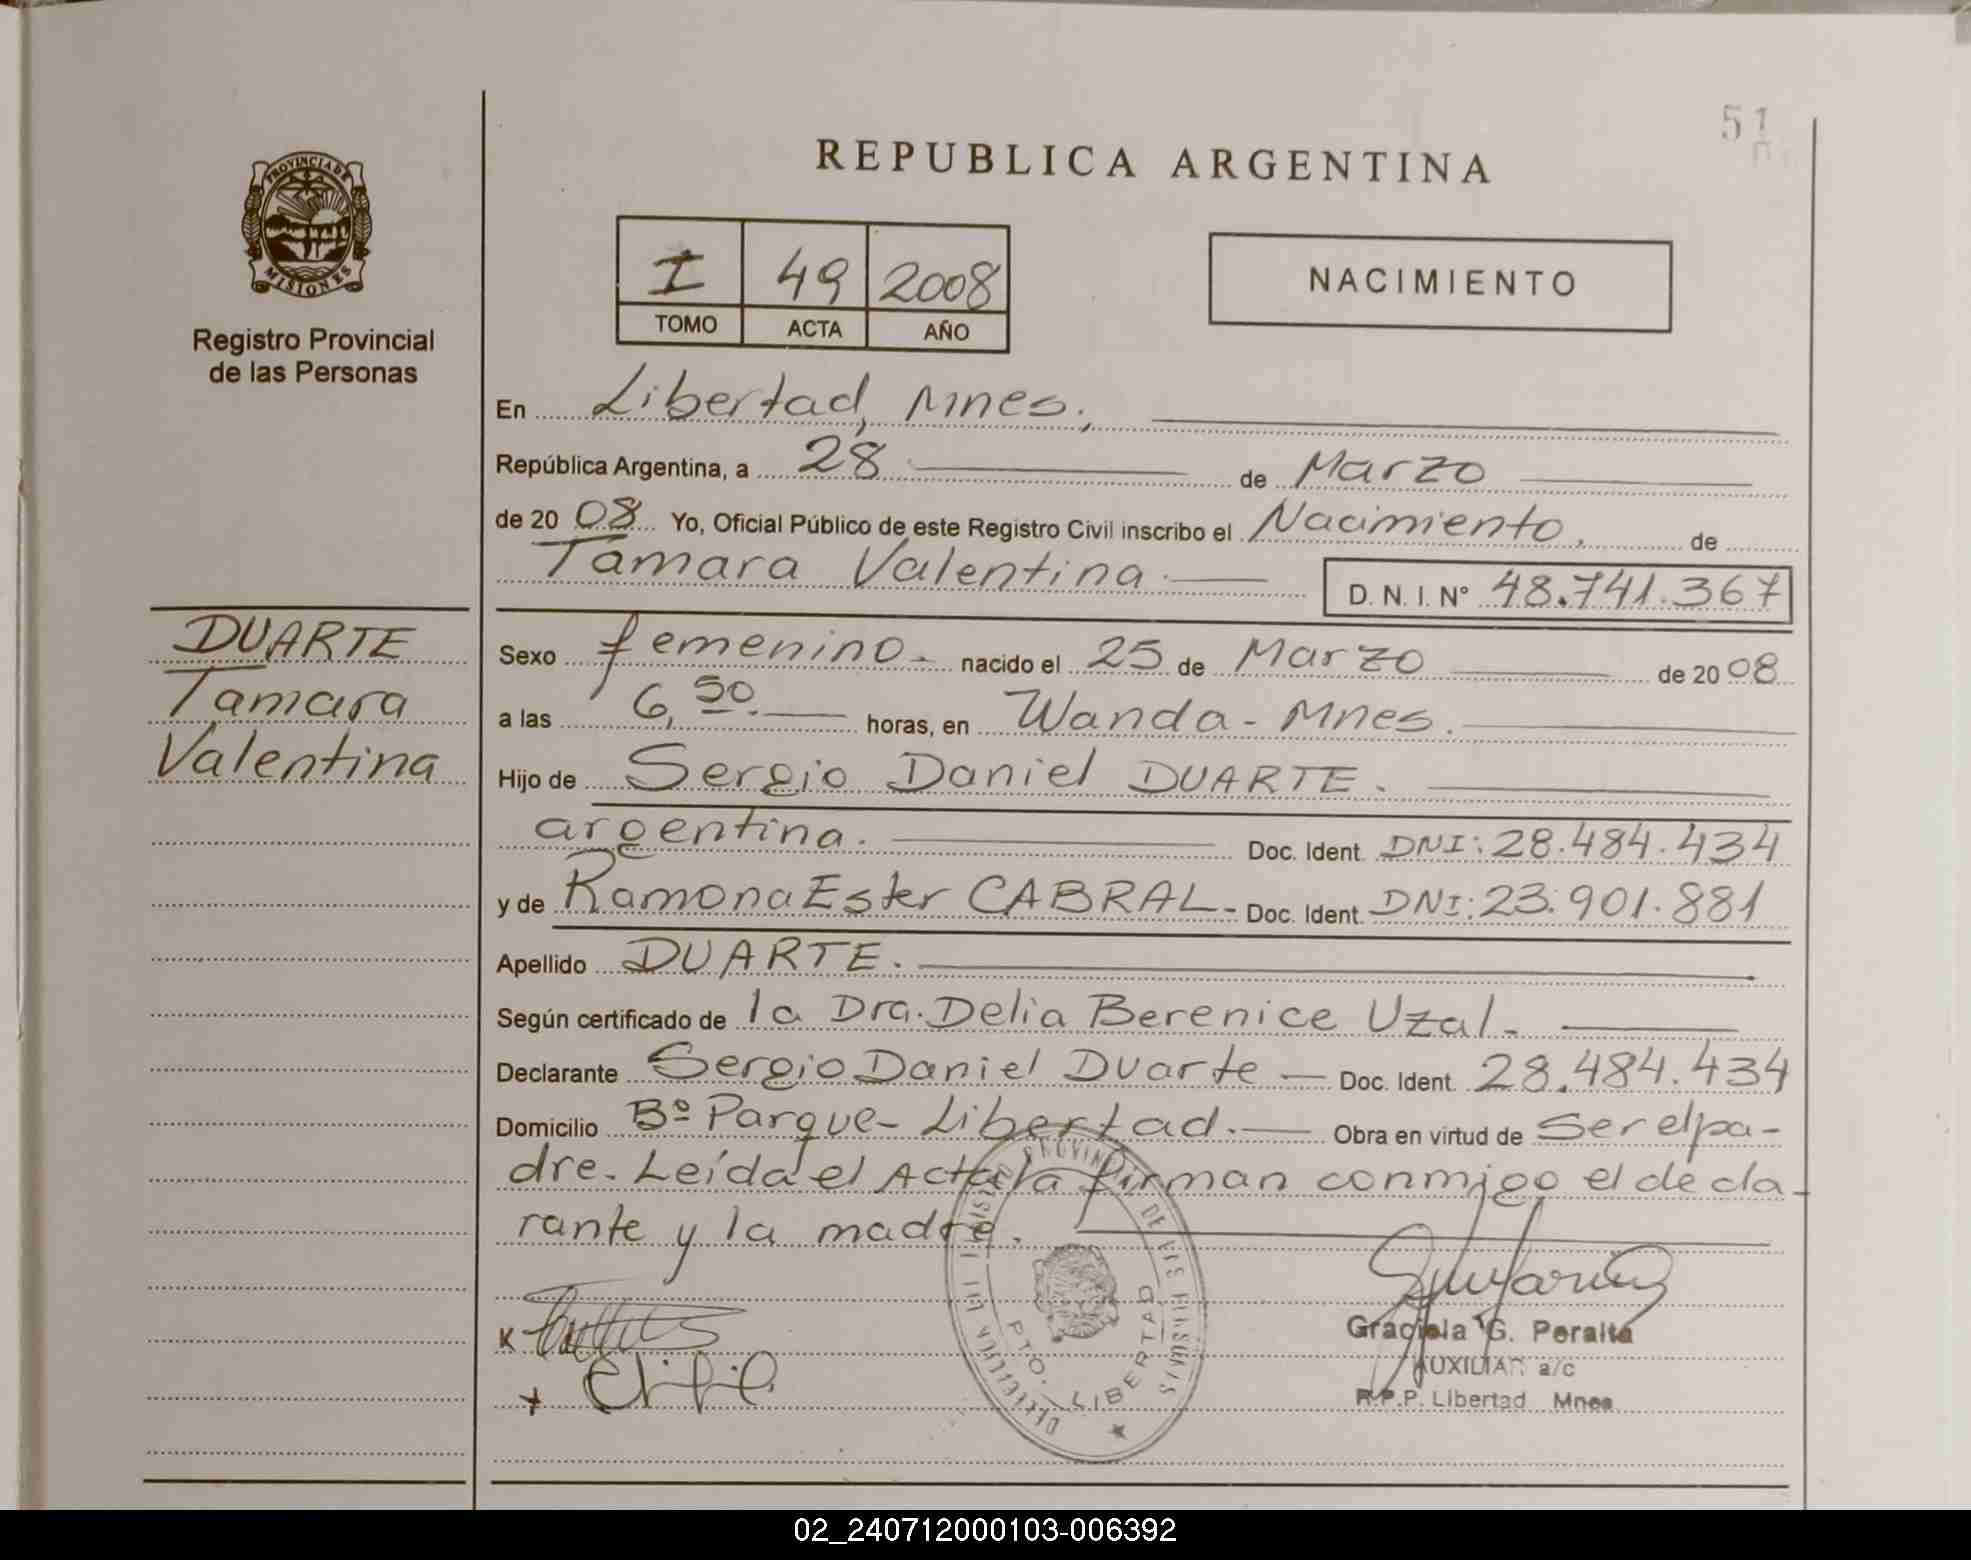 51
PROVINCIA DE
MISIONES
Registro Provincial
de las Personas
REPUBLICA ARGENTINA
I 49 2008
TOMO ACTA AÑO
NACIMIENTO
En Libertad, Mnes.,
República Argentina, a 28 de Marzo
de 20 08 Yo, Oficial Público de este Registro Civil inscribo el Nacimiento, de
Tamara Valentina. D. N. I. N° 48.741.367
DUARTE
Tamara
Valentina
Sexo femenino. nacido el 25 de Marzo de 20 08
a las 6, horas, en Wanda - Mnes.
Hijo de Sergio Daniel DUARTE.
argentina. Doc. Ident. DNI: 28.484.434
y de Ramona Ester CABRAL - Doc. Ident. DNI: 23.901.881
Apellido DUARTE.
Según certificado de la Dra. Delia Berenice Uzal.
Declarante Sergio Daniel Duarte - Doc. Ident. 28.484.434
Domicilio Bº Parque - Libertad. Obra en virtud de Ser el pa-
dre. Leída el Acta la firman conmigo el decla-
rante y la madre.
PTO. LIBERTAD
Graciela G. Peralta
AUXILIAR a/c
R.P.P. Libertad Mnes
02_240712000103-006392